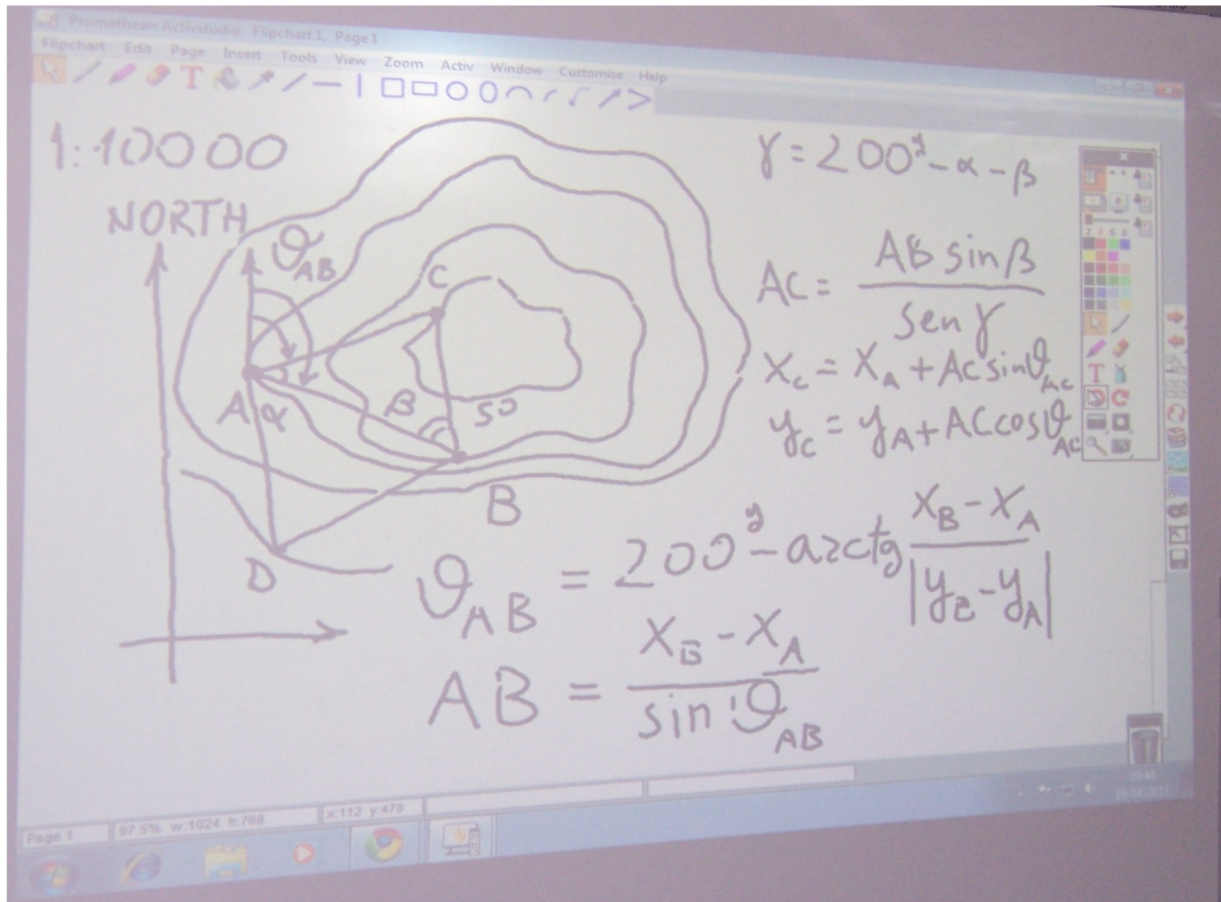 Promethean Activstudio Flipchart 1, Page 1
Flipchart Edit Page Insert Tools View Zoom Activ Window Customise Help
1:10000
NORTH
ϑAB
C
A
α
β
50
B
D
γ = 200ᵍ - α - β
AC = AB sinβ / sen γ
Xc = XA + AC sinϑAC
yc = yA + AC cosϑAC
ϑAB = 200ᵍ - arctg XB - XA / |yB - yA|
AB = XB - XA / sin ϑAB
2 4 6 8
Page 1
97.5% w:1024 h:768
x:112 y:478